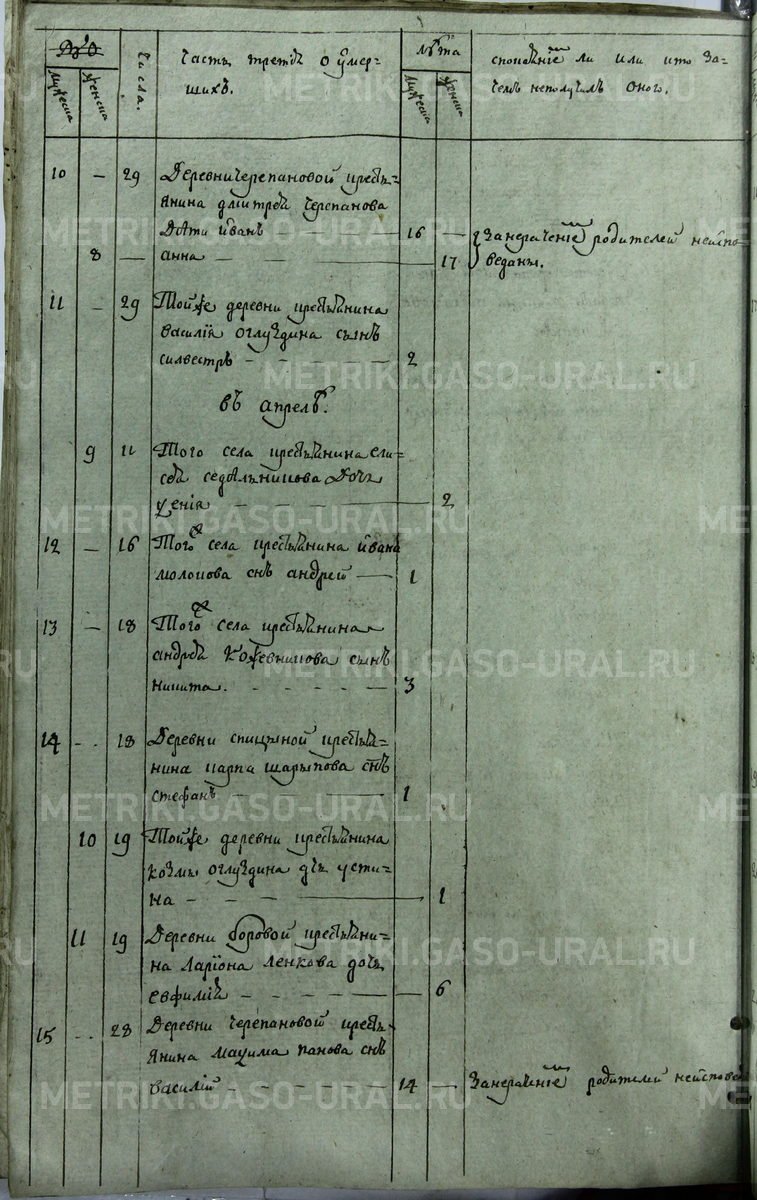 числа. Часть третья о умер-
ших.
лѣта
мужеска
женска
10 — 29 Деревни черепановой кресть-
янина дмитрея черепанова
дѣти иванъ — 16 — занерачениемъ родителей неиспо-
8 — анна — 17 веданы.
11 — 29 Тойже деревни крестьянина
василия оглуздина сынъ
силвестръ — 2
въ апрелѣ.
9 11 Того села крестьянина ели-
сѣя седѣлникова дочь
ксения — 2
12 — 16 Тогоже села крестьянина ивана
молокова снъ андрей — 1
13 — 18 Тогоже села крестьянина
андрея кожевникова сынъ
никита. — 3
14 — 18 Деревни спицыной крестья-
нина карпа шарыпова снъ
стефанъ — 1
10 19 Тойже деревни крестьянина
козмы оглуздина дчь усти-
на — 1
11 19 Деревни боровой крестьяни-
на Лариона Ленкова дочь
евфимия — 6
15 — 28 Деревни черепановой кресть-
янина максима панова снъ
василий — 14 — занерачениемъ родителей неиспове
METRIKI.GASO-URAL.RU